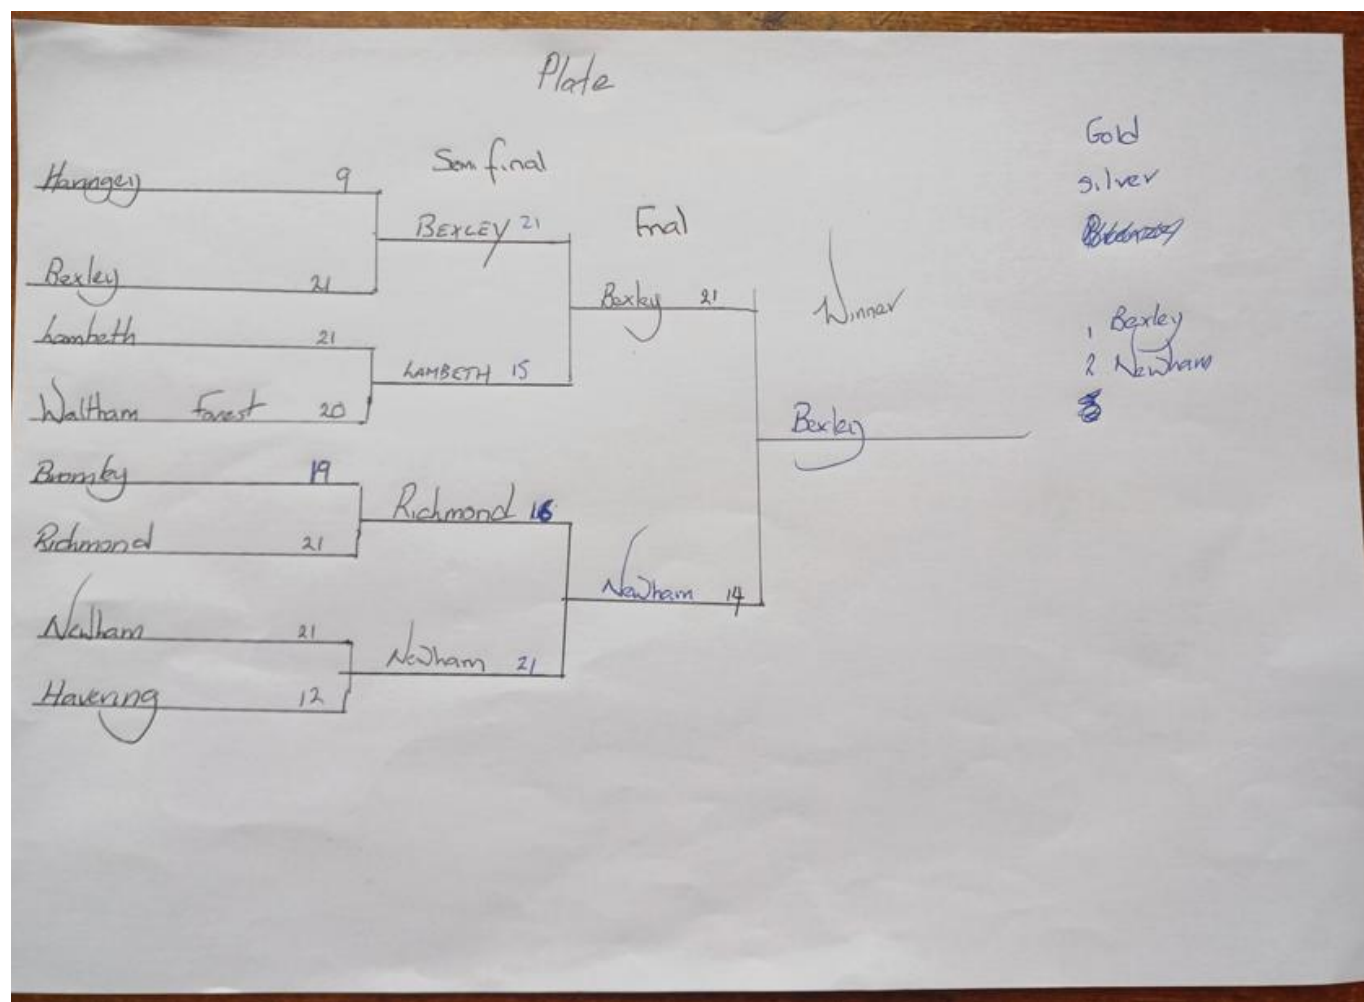 Plate
Haringey 9
Bexley 21
Lambeth 21
Waltham Forest 20
Bromley 19
Richmond 21
Newham 21
Havering 12
Semi final
BEXLEY 21
LAMBETH 15
Richmond 16
Newham 21
Final
Bexley 21
Newham 14
Winner
Bexley
Gold
Silver
1 Bexley
2 Newham